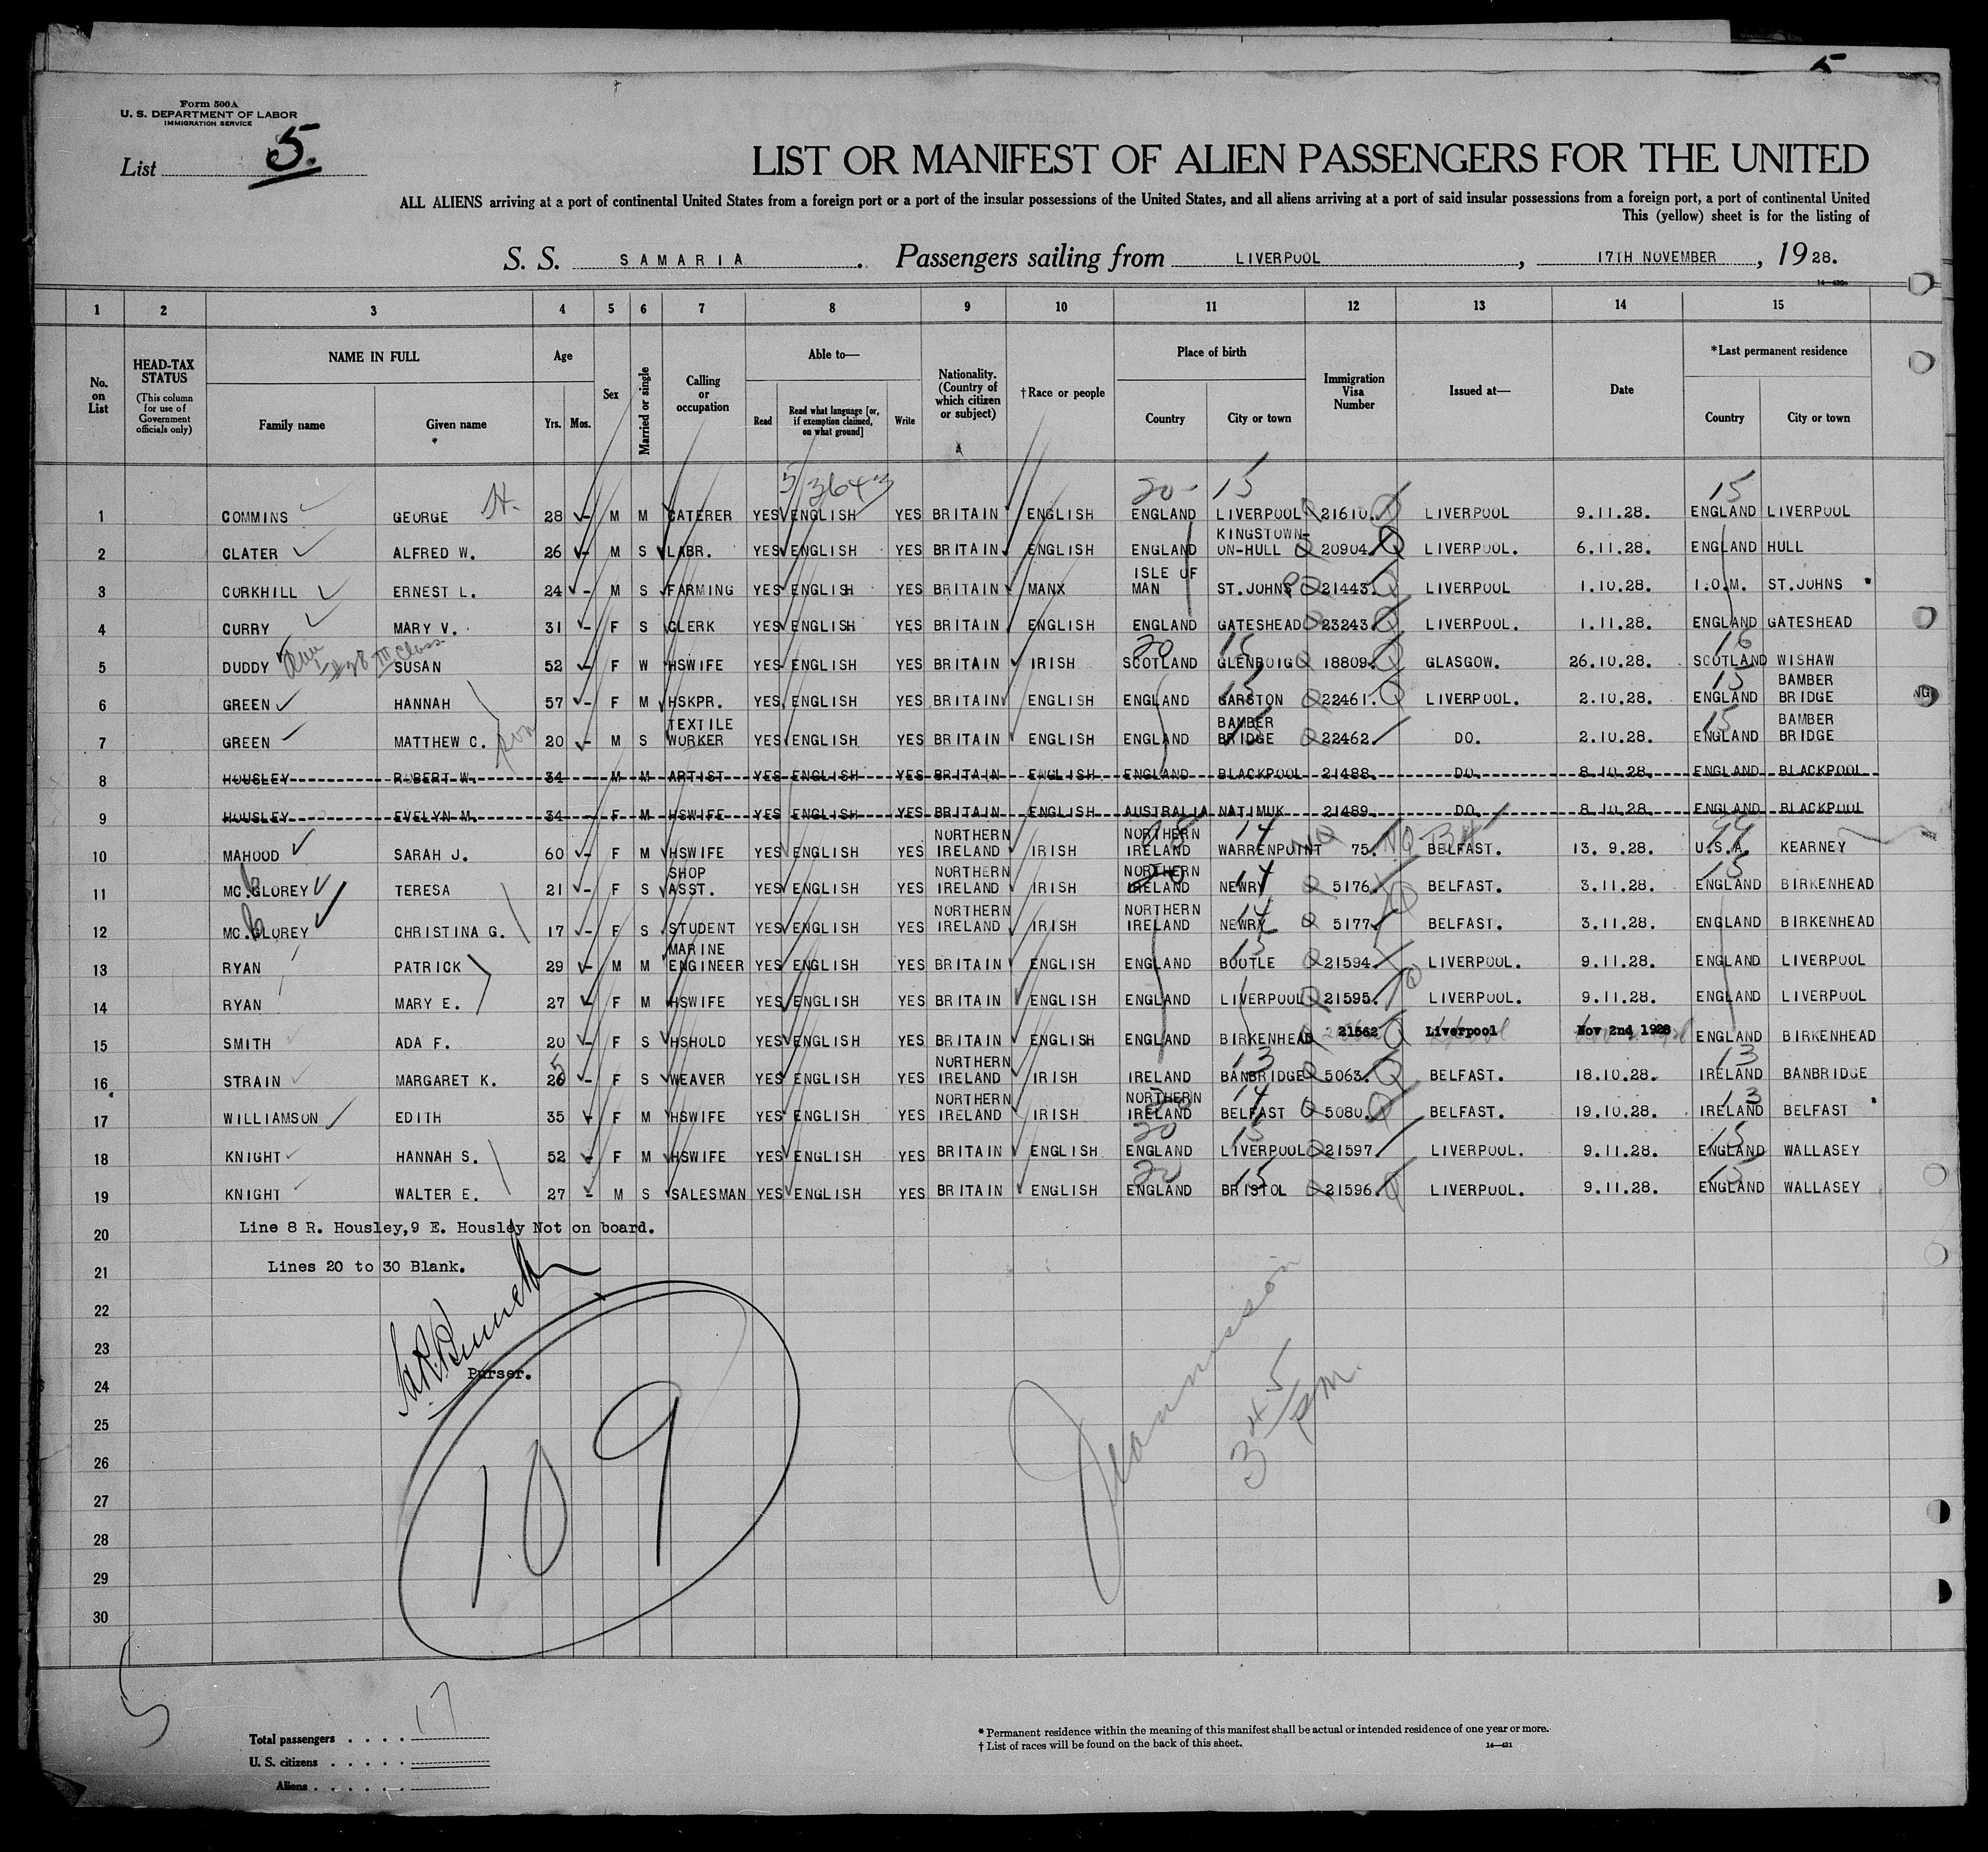 5
Form 500A
U. S. DEPARTMENT OF LABOR
IMMIGRATION SERVICE
List 5.
LIST OR MANIFEST OF ALIEN PASSENGERS FOR THE UNITED
ALL ALIENS arriving at a port of continental United States from a foreign port or a port of the insular possessions of the United States, and all aliens arriving at a port of said insular possessions from a foreign port, a port of continental United
This (yellow) sheet is for the listing of
S. S. SAMARIA. Passengers sailing from LIVERPOOL, 17TH NOVEMBER, 1928.
1 2 3 4 5 6 7 8 9 10 11 12 13 14 15
No. on List
HEAD-TAX STATUS (This column for use of Government officials only)
NAME IN FULL Family name Given name
Age Yrs. Mos.
Sex
Married or single
Calling or occupation
Able to— Read Read what language [or, if exemption claimed, on what ground] Write
Nationality. (Country of which citizen or subject)
† Race or people
Place of birth Country City or town
Immigration Visa Number
Issued at—
Date
* Last permanent residence Country City or town
5/3643 20- 15 15
1 COMMINS GEORGE 28 - M M CATERER YES ENGLISH YES BRITAIN ENGLISH ENGLAND LIVERPOOL 21610. LIVERPOOL 9.11.28. ENGLAND LIVERPOOL
2 CLATER ALFRED W. 26 - M S LABR. YES ENGLISH YES BRITAIN ENGLISH ENGLAND KINGSTOWN-ON-HULL 20904. LIVERPOOL. 6.11.28. ENGLAND HULL
3 CORKHILL ERNEST L. 24 - M S FARMING YES ENGLISH YES BRITAIN MANX ISLE OF MAN ST.JOHNS 21443. LIVERPOOL 1.10.28. I.O.M. ST.JOHNS
4 CURRY MARY V. 31 - F S CLERK YES ENGLISH YES BRITAIN ENGLISH ENGLAND GATESHEAD 23243. LIVERPOOL. 1.11.28. ENGLAND GATESHEAD
III Class
5 DUDDY SUSAN 52 - F W HSWIFE YES ENGLISH YES BRITAIN IRISH SCOTLAND GLENBOIG 18809. GLASGOW. 26.10.28. SCOTLAND WISHAW
6 GREEN HANNAH 57 - F M HSKPR. YES ENGLISH YES BRITAIN ENGLISH ENGLAND GARSTON 22461. LIVERPOOL. 2.10.28. ENGLAND BAMBER BRIDGE
7 GREEN MATTHEW C. 20 - M S TEXTILE WORKER YES ENGLISH YES BRITAIN ENGLISH ENGLAND BAMBER BRIDGE 22462. DO. 2.10.28. ENGLAND BAMBER BRIDGE
8 HOUSLEY ROBERT W. 34 M M ARTIST YES ENGLISH YES BRITAIN ENGLISH ENGLAND BLACKPOOL 21488. DO. 8.10.28. ENGLAND BLACKPOOL
9 HOUSLEY EVELYN M. 34 - F M HSWIFE YES ENGLISH YES BRITAIN ENGLISH AUSTRALIA NATIMUK 21489. DO. 8.10.28. ENGLAND BLACKPOOL
10 MAHOOD SARAH J. 60 - F M HSWIFE YES ENGLISH YES NORTHERN IRELAND IRISH NORTHERN IRELAND WARRENPOINT 75. BELFAST. 13. 9.28. U.S.A. KEARNEY
11 MC.GLOREY TERESA 21 - F S SHOP ASST. YES ENGLISH YES NORTHERN IRELAND IRISH NORTHERN IRELAND NEWRY 5176. BELFAST. 3.11.28. ENGLAND BIRKENHEAD
12 MC.GLOREY CHRISTINA G. 17 - F S STUDENT YES ENGLISH YES NORTHERN IRELAND IRISH NORTHERN IRELAND NEWRY 5177. BELFAST. 3.11.28. ENGLAND BIRKENHEAD
13 RYAN PATRICK 29 - M M MARINE ENGINEER YES ENGLISH YES BRITAIN ENGLISH ENGLAND BOOTLE 21594. LIVERPOOL. 9.11.28. ENGLAND LIVERPOOL
14 RYAN MARY E. 27 - F M HSWIFE YES ENGLISH YES BRITAIN ENGLISH ENGLAND LIVERPOOL 21595. LIVERPOOL. 9.11.28. ENGLAND LIVERPOOL
15 SMITH ADA F. 20 - F S HSHOLD YES ENGLISH YES BRITAIN ENGLISH ENGLAND BIRKENHEAD 21562 Liverpool Nov 2nd 1928 ENGLAND BIRKENHEAD
16 STRAIN MARGARET K. 26 - F S WEAVER YES ENGLISH YES NORTHERN IRELAND IRISH IRELAND BANBRIDGE 5063. BELFAST. 18.10.28. IRELAND BANBRIDGE
17 WILLIAMSON EDITH 35 - F M HSWIFE YES ENGLISH YES NORTHERN IRELAND IRISH NORTHERN IRELAND BELFAST 5080. BELFAST. 19.10.28. IRELAND BELFAST
18 KNIGHT HANNAH S. 52 - F M HSWIFE YES ENGLISH YES BRITAIN ENGLISH ENGLAND LIVERPOOL 21597 LIVERPOOL. 9.11.28. ENGLAND WALLASEY
19 KNIGHT WALTER E. 27 - M S SALESMAN YES ENGLISH YES BRITAIN ENGLISH ENGLAND BRISTOL 21596. LIVERPOOL. 9.11.28. ENGLAND WALLASEY
20 Line 8 R. Housley,9 E. Housley Not on board.
21 Lines 20 to 30 Blank.
22
23
Purser.
24
25
26
27
28
29
30
109
3 45 pm.
5
Total passengers . . . . 17
U. S. citizens . . . . .
Aliens . . . . . .
* Permanent residence within the meaning of this manifest shall be actual or intended residence of one year or more.
† List of races will be found on the back of this sheet.
14—431